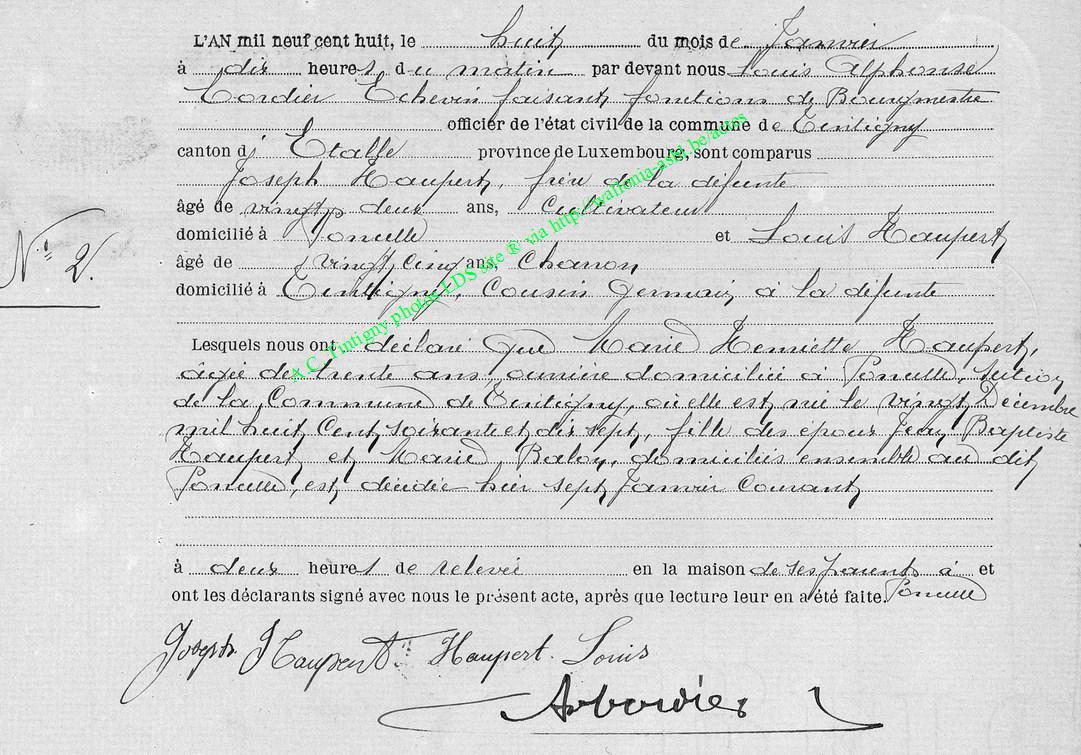 L'AN mil neuf cent huit, le huit du mois de Janvier
à dix heures du matin par devant nous Louis Alphonse
Cordier Echevin faisant fonctions de Bourgmestre
officier de l'état civil de la commune de Tintigny
canton d' Etalle province de Luxembourg, sont comparus
Joseph Haupert, frère de la défunte
âgé de vingt deux ans, Cultivateur
domicilié à Poncelle et Louis Haupert
N° 2.
âgé de vingt cinq ans, Charron
domicilié à Tintigny, Cousin Germain à la défunte
Lesquels nous ont déclaré que Marie Henriette Haupert,
âgée de trente ans, ouvrière domiciliée à Poncelle, section
de la Commune de Tintigny, où elle est née le vingt Décembre
mil huit Cent soixante et dix sept, fille des époux Jean Baptiste
Haupert et Marie Balon, domiciliés ensemble au dit
Poncelle, est décédée hier sept Janvier Courant
à deux heures de relevée en la maison de ses parents à et
ont les déclarants signé avec nous le présent acte, après que lecture leur en a été faite. Poncelle
Joseph Haupert Haupert Louis
A.C. Tintigny photos LDS site ® via http://wallonia-asbl.be/actes